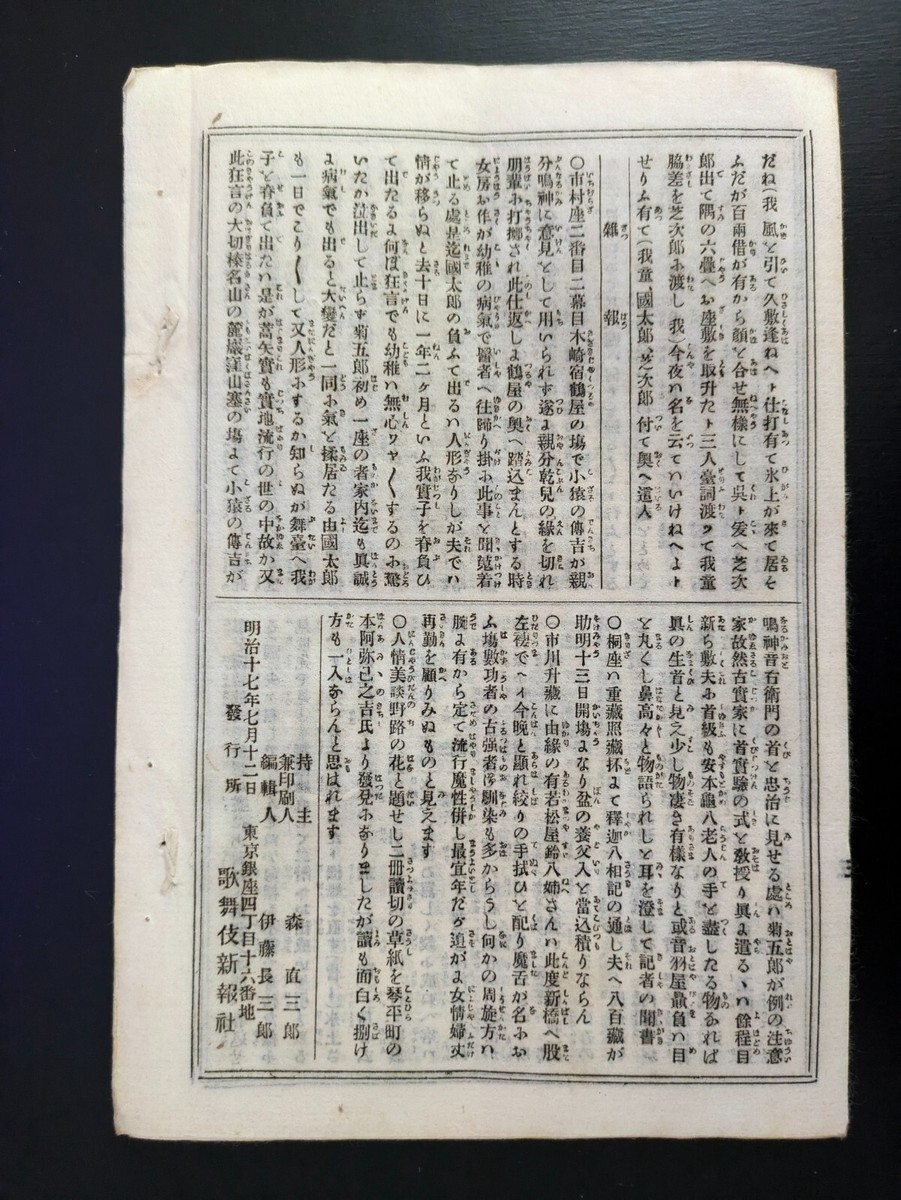 だね(我 風を引て久敷逢ねへト仕打有て氷上が來て居そ
ふだが百兩借が有から顔を合せ無樣にして呉ト爰へ芝次
郎出て隅の六疊へお座敷を取升たト三人臺詞渡ッて我童
脇差を芝次郎に渡し 我)今夜ハ名を云ていけねへよト
せりふ有て(我童、國太郎、芝次郎 付て奧へ這入
雜報
〇市村座二番目二幕目木崎宿鶴屋の塲で小猿の傳吉が親
分鳴神に意見をして用いられず遂に親分乾兒の緣を切れ
朋輩に打擲され此仕返しに鶴屋の奧へ踏込まんとする時
女房お作が幼稚の病氣で醫者へ往歸り掛に此事を聞駈着
て止る處是迄國太郎の負ふて出るハ人形なりしが夫でハ
情が移らぬと去十日に一年二ケ月といふ我實子を脊負ひ
て出たるに何ぼ狂言でも幼稚ハ無心ワヤ〱するのに驚
いたか泣出して止らず菊五郎初め一座の者家内迄も眞誠
に病氣でも出ると大變だと一同に氣を揉居たる由國太郎
も一日でこり〱して又人形にするか知らぬが舞臺へ我
子を脊負て出たハ是が蒿矢實も實地流行の世の中故か又
此狂言の大切榛名山の麓巖窪山塞の塲にて小猿の傳吉が
鳴神音右衞門の首を忠治に見せる處ハ菊五郎が例の注意
家故然古實家に首實驗の式を敎授り眞に遣るゝハ餘程目
新ら敷夫に首級も安本龜八老人の手を盡したる物なれば
眞の生首と見え少し物凄き有樣なりと或音羽屋贔負ハ目
を丸くし鼻高々と物語られしを耳を澄して記者の聞書
〇桐座ハ重藏照藏抔にて釋迦八相記の通し夫へ八百藏が
助明十三日開塲なり盆の養父入を當込積りならん
〇市川升藏に由緣の有若松屋鈴八姉さんハ此度新橋へ股
左褄でヘイ今晚と顯れ絞りの手拭ひを配り魔舌が名にお
ふ塲數功者の古强者馴染も多からうし何かの周旋方ハ
腕に有から定て流行魔性併し最宜年だが迫がに女情婦丈
再勤を顧りみぬものと見えます
〇人情美談野路の花と題せし二册讀切の草紙を琴平町の
本阿弥己之吉氏より發兌になりましたが讀も面白く捌け
方も一入ならんと思はれます
明治十七年七月十二日
持主 森直三郎
兼印刷人
編輯人 伊藤長三郎
發行所 東京銀座四丁目十六番地
歌舞伎新報社